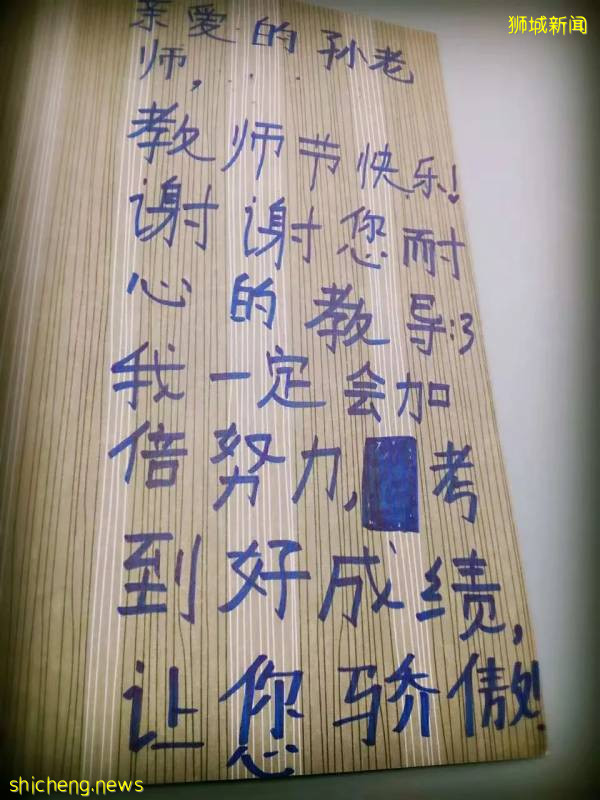 狮城新闻
亲爱的孙老
师,...
教师节快乐!
谢谢您耐
心的教导:3
我一定会加
倍努力,考
到好成绩,
让您骄傲
shicheng.news